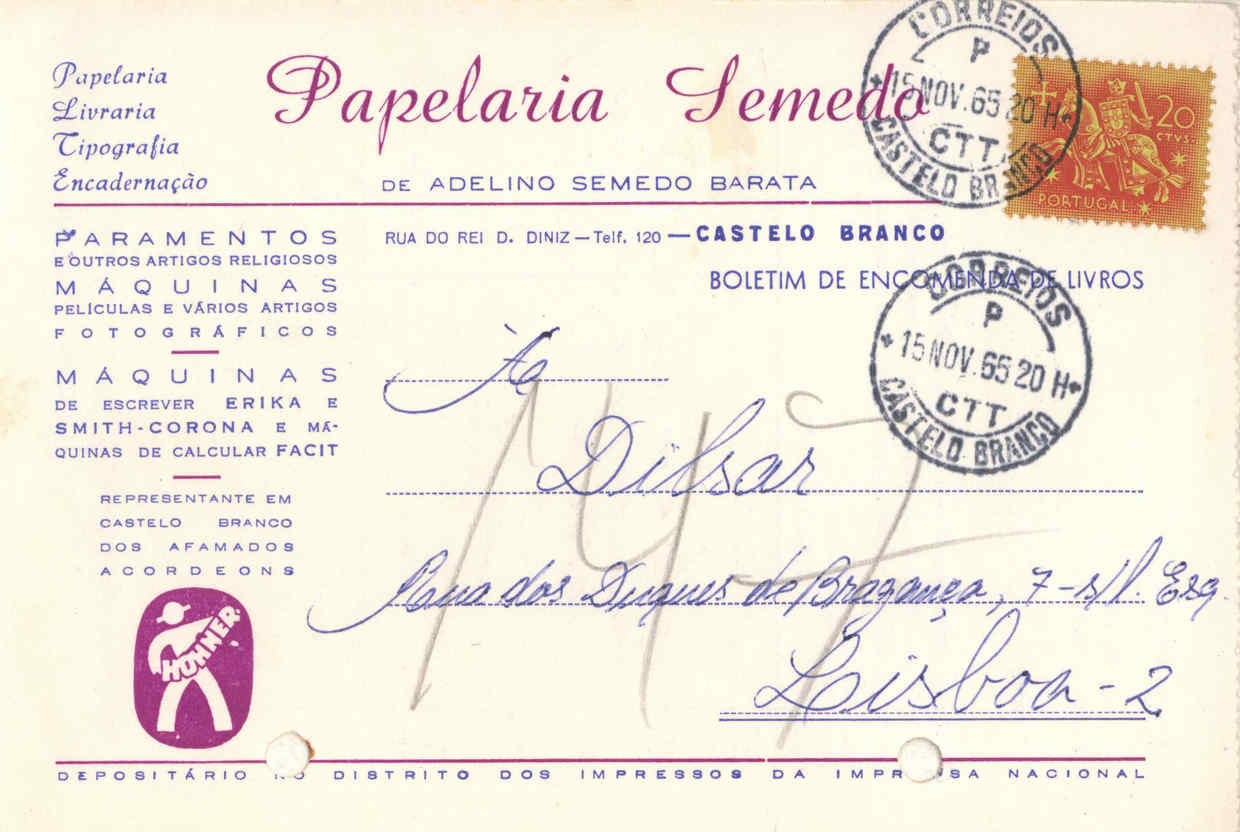 Papelaria
Livraria
Tipografia
Encadernação
Papelaria Semedo
DE ADELINO SEMEDO BARATA
RUA DO REI D. DINIZ — Telf. 120 — CASTELO BRANCO
BOLETIM DE ENCOMENDA DE LIVROS
CORREIOS
P
15 NOV. 65 20 H
CTT
CASTELO BRANCO
20
CTVS
PORTUGAL
CORREIOS
P
15 NOV. 65 20 H
CTT
CASTELO BRANCO
PARAMENTOS
E OUTROS ARTIGOS RELIGIOSOS
MÁQUINAS
PELICULAS E VÁRIOS ARTIGOS
FOTOGRÁFICOS
MÁQUINAS
DE ESCREVER ERIKA E
SMITH-CORONA E MÁ-
QUINAS DE CALCULAR FACIT
REPRESENTANTE EM
CASTELO BRANCO
DOS AFAMADOS
ACORDEONS
HOHNER
Dilsar
Rua dos Duques de Bragança, 7-s/l. Esq.
Lisboa - 2
DEPOSITÁRIO NO DISTRITO DOS IMPRESSOS DA IMPRENSA NACIONAL